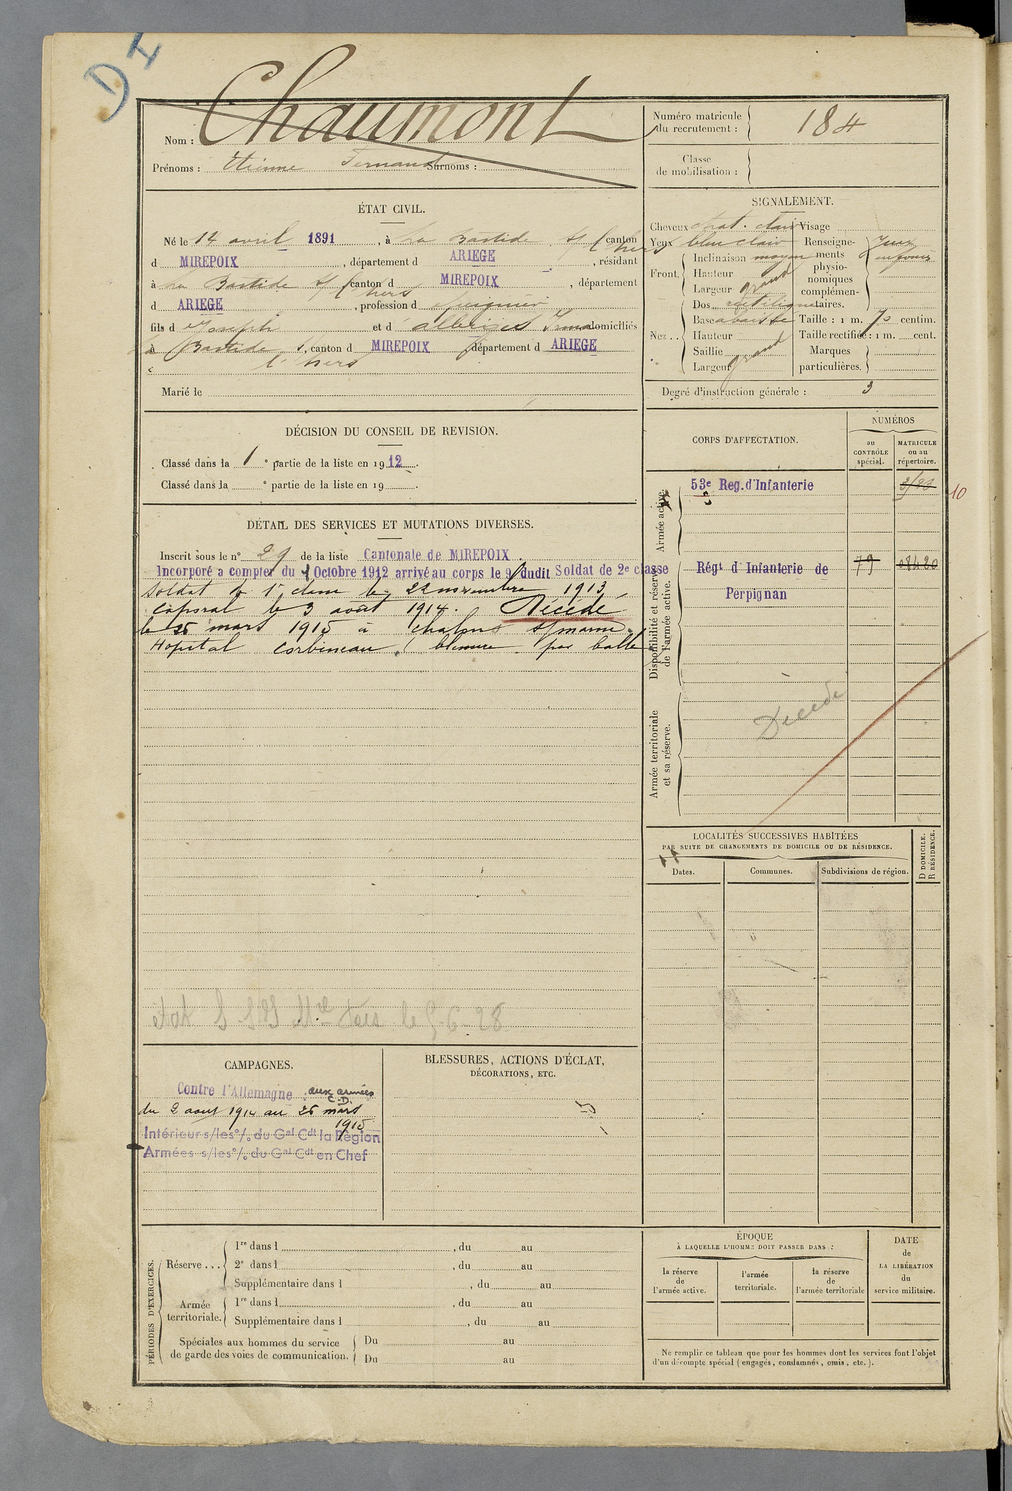 DI
Nom : Chaumont
Prénoms : Etienne Fernand Surnoms :
Numéro matricule du recrutement : 184
Classe de mobilisation :
ÉTAT CIVIL.
Né le 14 avril 1891, à La Bastide s/ l'hers canton
d MIREPOIX, département d ARIEGE, résidant
à La Bastide s/ l'hers canton d MIREPOIX, département
d ARIEGE, profession d
fils d Joseph et d Irma domiciliés
à La Bastide s/, canton d MIREPOIX département d ARIEGE
l'hers
Marié le
SIGNALEMENT.
Cheveux chat. clair Visage
Yeux bleu clair
Front. Inclinaison moyen
Hauteur
Largeur grand
Nez .. Dos rectiligne
Base abaissé
Hauteur
Saillie grand
Largeur
Renseignements physionomiques complémentaires.
Yeux enfoncés
Taille : 1 m. 70 centim.
Taille rectifiée : 1 m. cent.
Marques particulières.
Degré d'instruction générale : 3
DÉCISION DU CONSEIL DE REVISION.
Classé dans la 1e partie de la liste en 1912.
Classé dans la e partie de la liste en 19 .
DÉTAIL DES SERVICES ET MUTATIONS DIVERSES.
Inscrit sous le n° 29 de la liste Cantonale de MIREPOIX.
Incorporé a compter du 1 Octobre 1912 arrivé au corps le 9 dudit Soldat de 2e classe
Soldat de 1e classe le 22 novembre 1913
Caporal le 3 août 1914. Décédé
le 25 mars 1915 à Chalons s/marne.
Hopital Corbineau. (blessure par balle)
CORPS D'AFFECTATION.
NUMÉROS
au CONTRÔLE spécial.
MATRICULE ou au répertoire.
Armée active.
53e Reg. d'Infanterie
10
Disponibilité et réserve de l'armée active.
Régt d'Infanterie de Perpignan
79
Armée territoriale et sa réserve.
Décédé
LOCALITÉS SUCCESSIVES HABITÉES
PAR SUITE DE CHANGEMENTS DE DOMICILE OU DE RÉSIDENCE.
Dates.
Communes.
Subdivisions de région.
D DOMICILE.
R RÉSIDENCE.
le 5-6-28
CAMPAGNES.
Contre l'Allemagne : aux armées
C.D.
du 2 août 1914 au 25 mars
1915
Intérieur s/les o/. du Gal Cdt la Région
Armées s/les o/. du Gal Cdt en Chef
BLESSURES, ACTIONS D'ÉCLAT,
DÉCORATIONS, ETC.
PÉRIODES D'EXERCICES.
Réserve ... 1re dans l , du au
2e dans l , du au
Supplémentaire dans l , du au
Armée territoriale. 1re dans l , du au
Supplémentaire dans l , du au
Spéciales aux hommes du service de garde des voies de communication. Du au
Du au
ÉPOQUE
À LAQUELLE L'HOMME DOIT PASSER DANS :
la réserve de l'armée active.
l'armée territoriale.
la réserve de l'armée territoriale
DATE de LA LIBÉRATION du service militaire.
Ne remplir ce tableau que pour les hommes dont les services font l'objet
d'un décompte spécial (engagés, condamnés, omis, etc.).